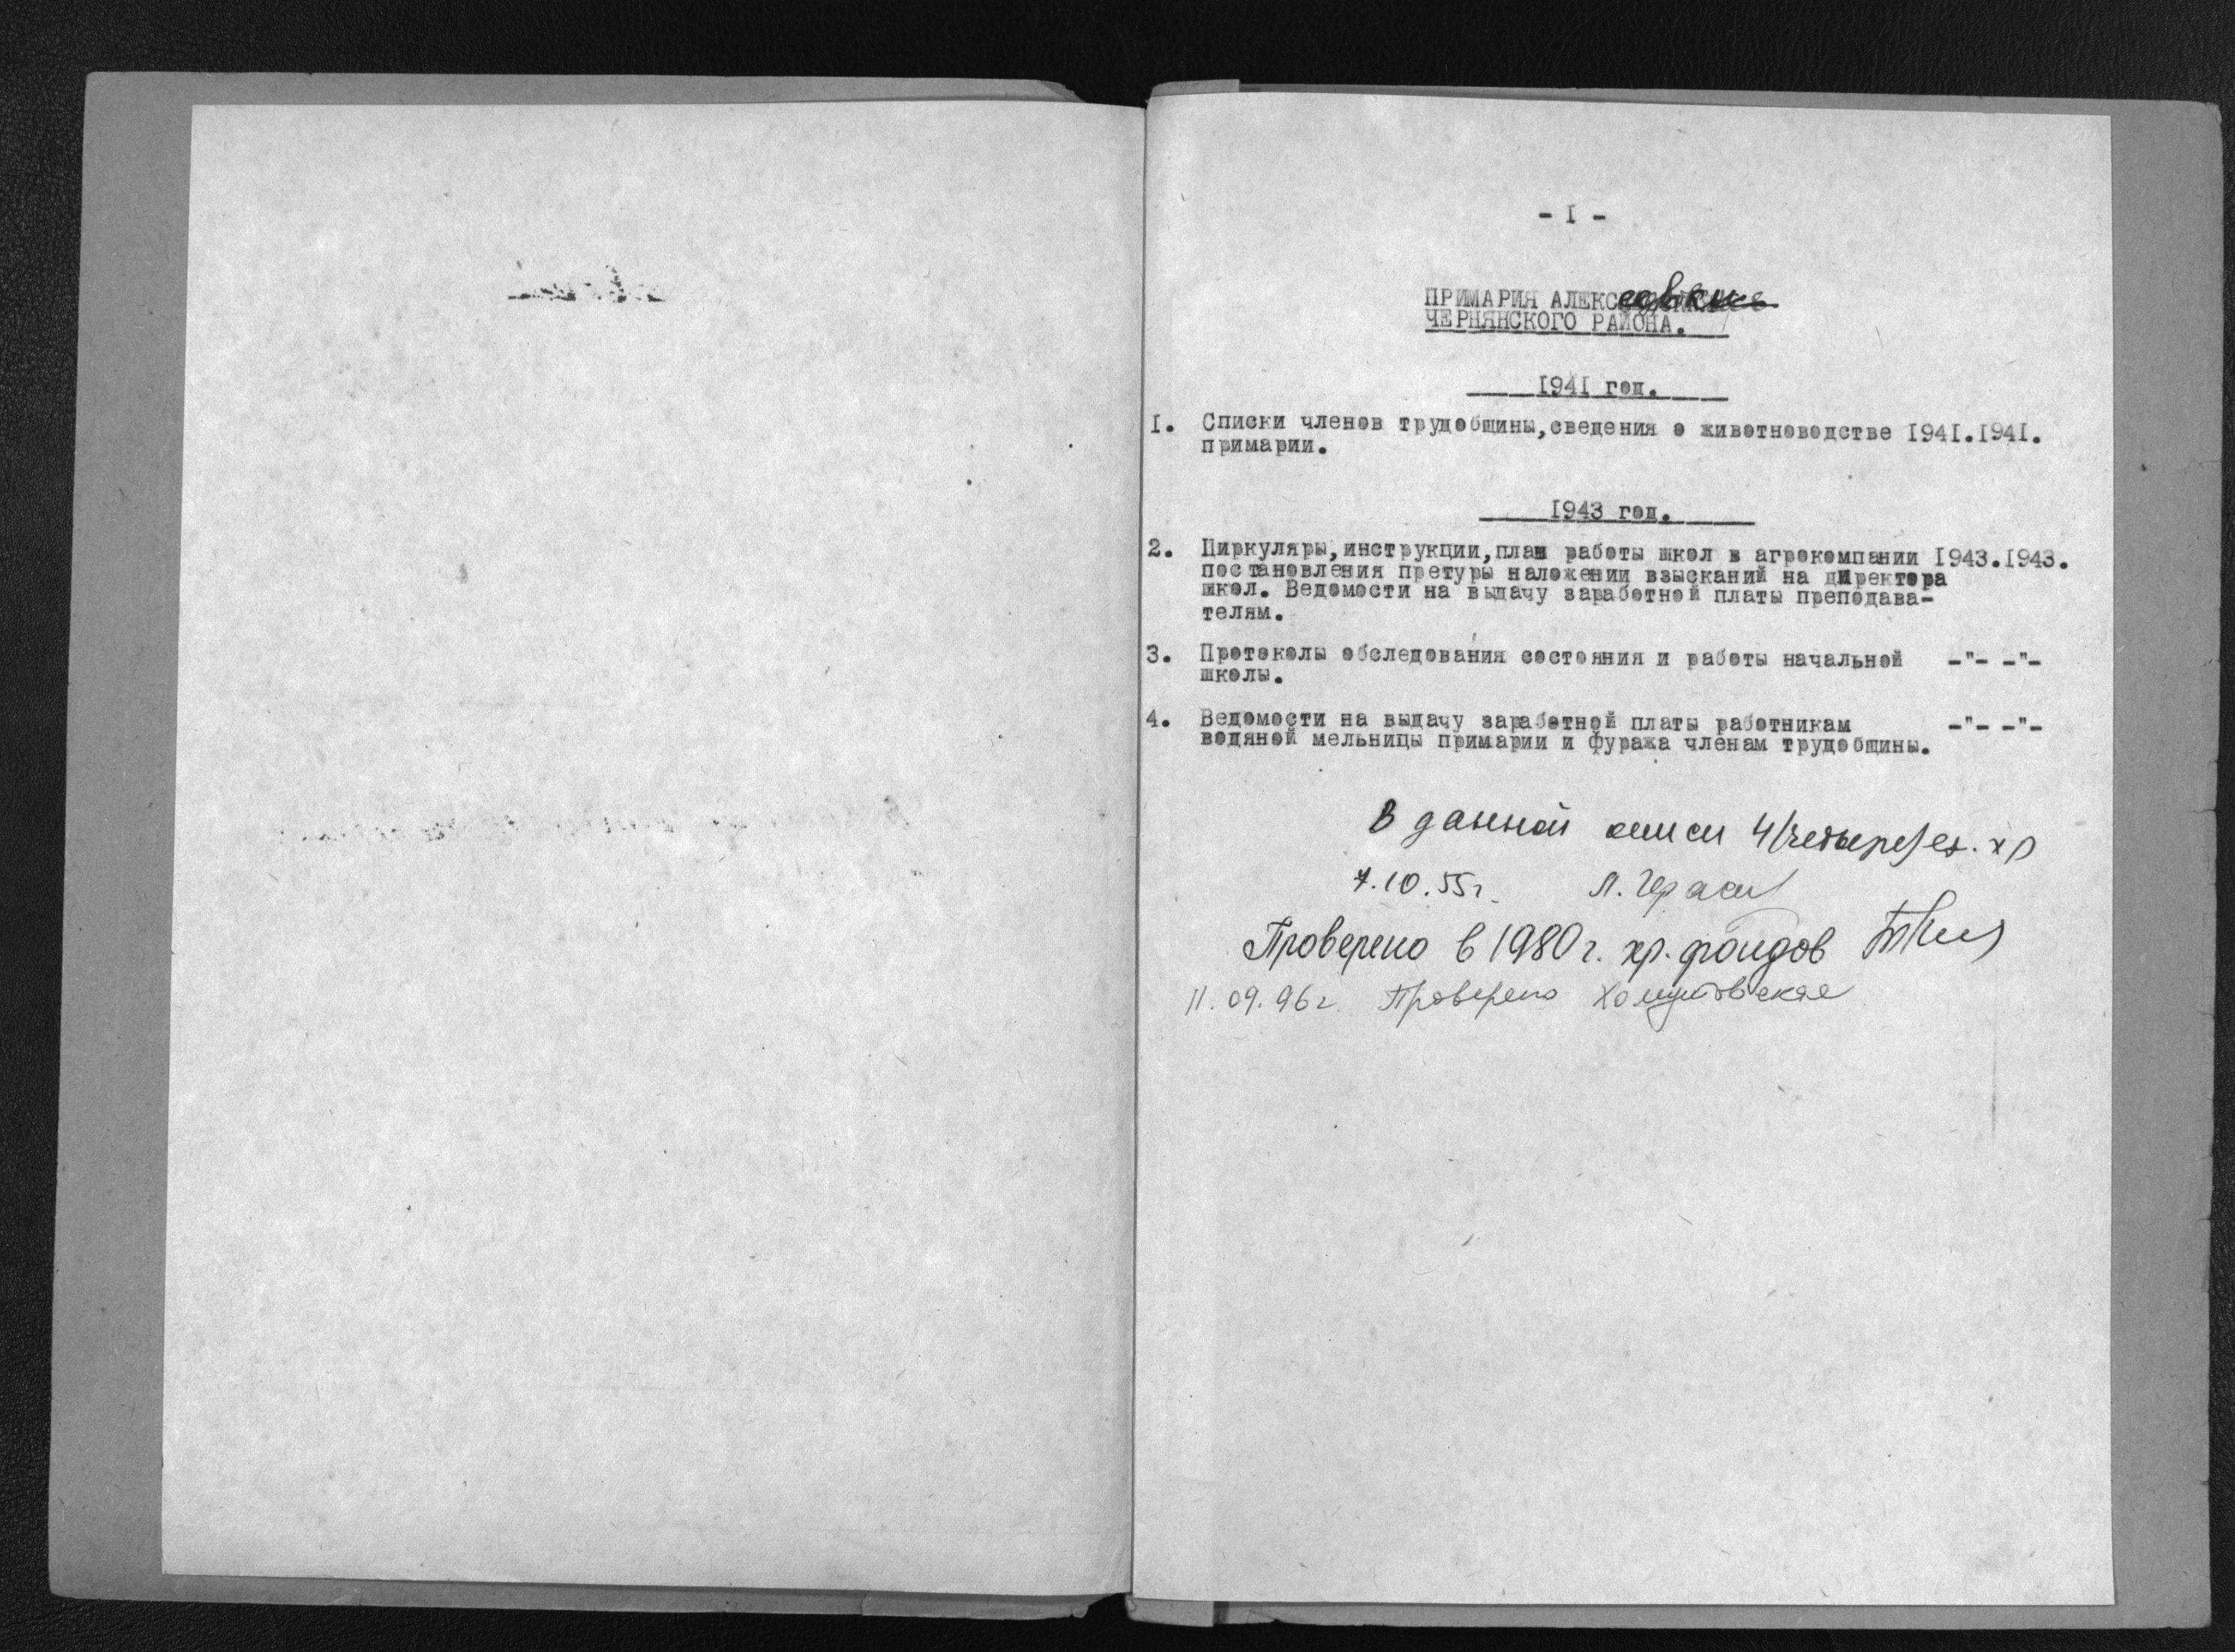 - I -
ПРИМАРИЯ АЛЕКСеевкие
ЧЕРНЯНСКОГО РАЙОНА.
1941 год.
I. Списки членов трудобщины,сведения о животноводстве I94I.I94I.
примарии.
1943 год.
2. Циркуляры,инструкции,план работы школ в агрокомпании I943.I943.
постановления претуры наложении взысканий на директора
школ. Ведомости на выдачу заработной платы преподава-
телям.
3. Протоколы обследования состояния и работы начальной -"- -"-
школы.
4. Ведомости на выдачу заработной платы работникам -"- -"-
водяной мельницы примарии и фуража членам трудобщины.
В данной описи 4/четыре/ ед. хр
7.10.55г. Л.
Проверено в 1980г. хр. фондов
11.09.96г. Проверено Хомутовская